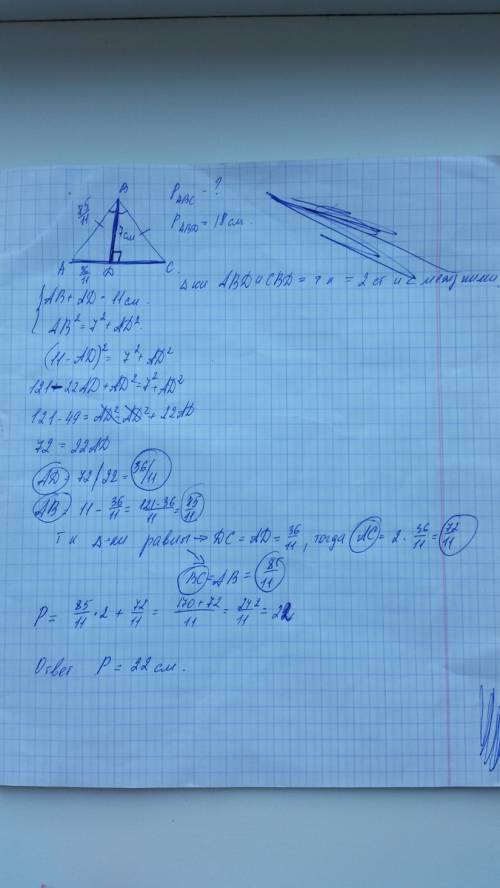 B
P ABC - ?
85/11
7 см
P ABD = 18 см.
A 36/11 D C
Δ-ки ABD и CBD = т к = 2 ст и ∠ между ними
{ AB + AD = 11 см.
AB² = 7² + AD²
(11 - AD)² = 7² + AD²
121 - 22AD + AD² = 7² + AD²
121 - 49 = AD² - AD² + 22AD
72 = 22AD
AD = 72/22 = 36/11
AB = 11 - 36/11 = 121-36/11 = 85/11
Т к Δ-ки равны → DC = AD = 36/11, тогда AC = 2 · 36/11 = 72/11
BC = AB = 85/11
P = 85/11 · 2 + 72/11 = 170+72/11 = 242/11 = 22
Ответ P = 22 см.